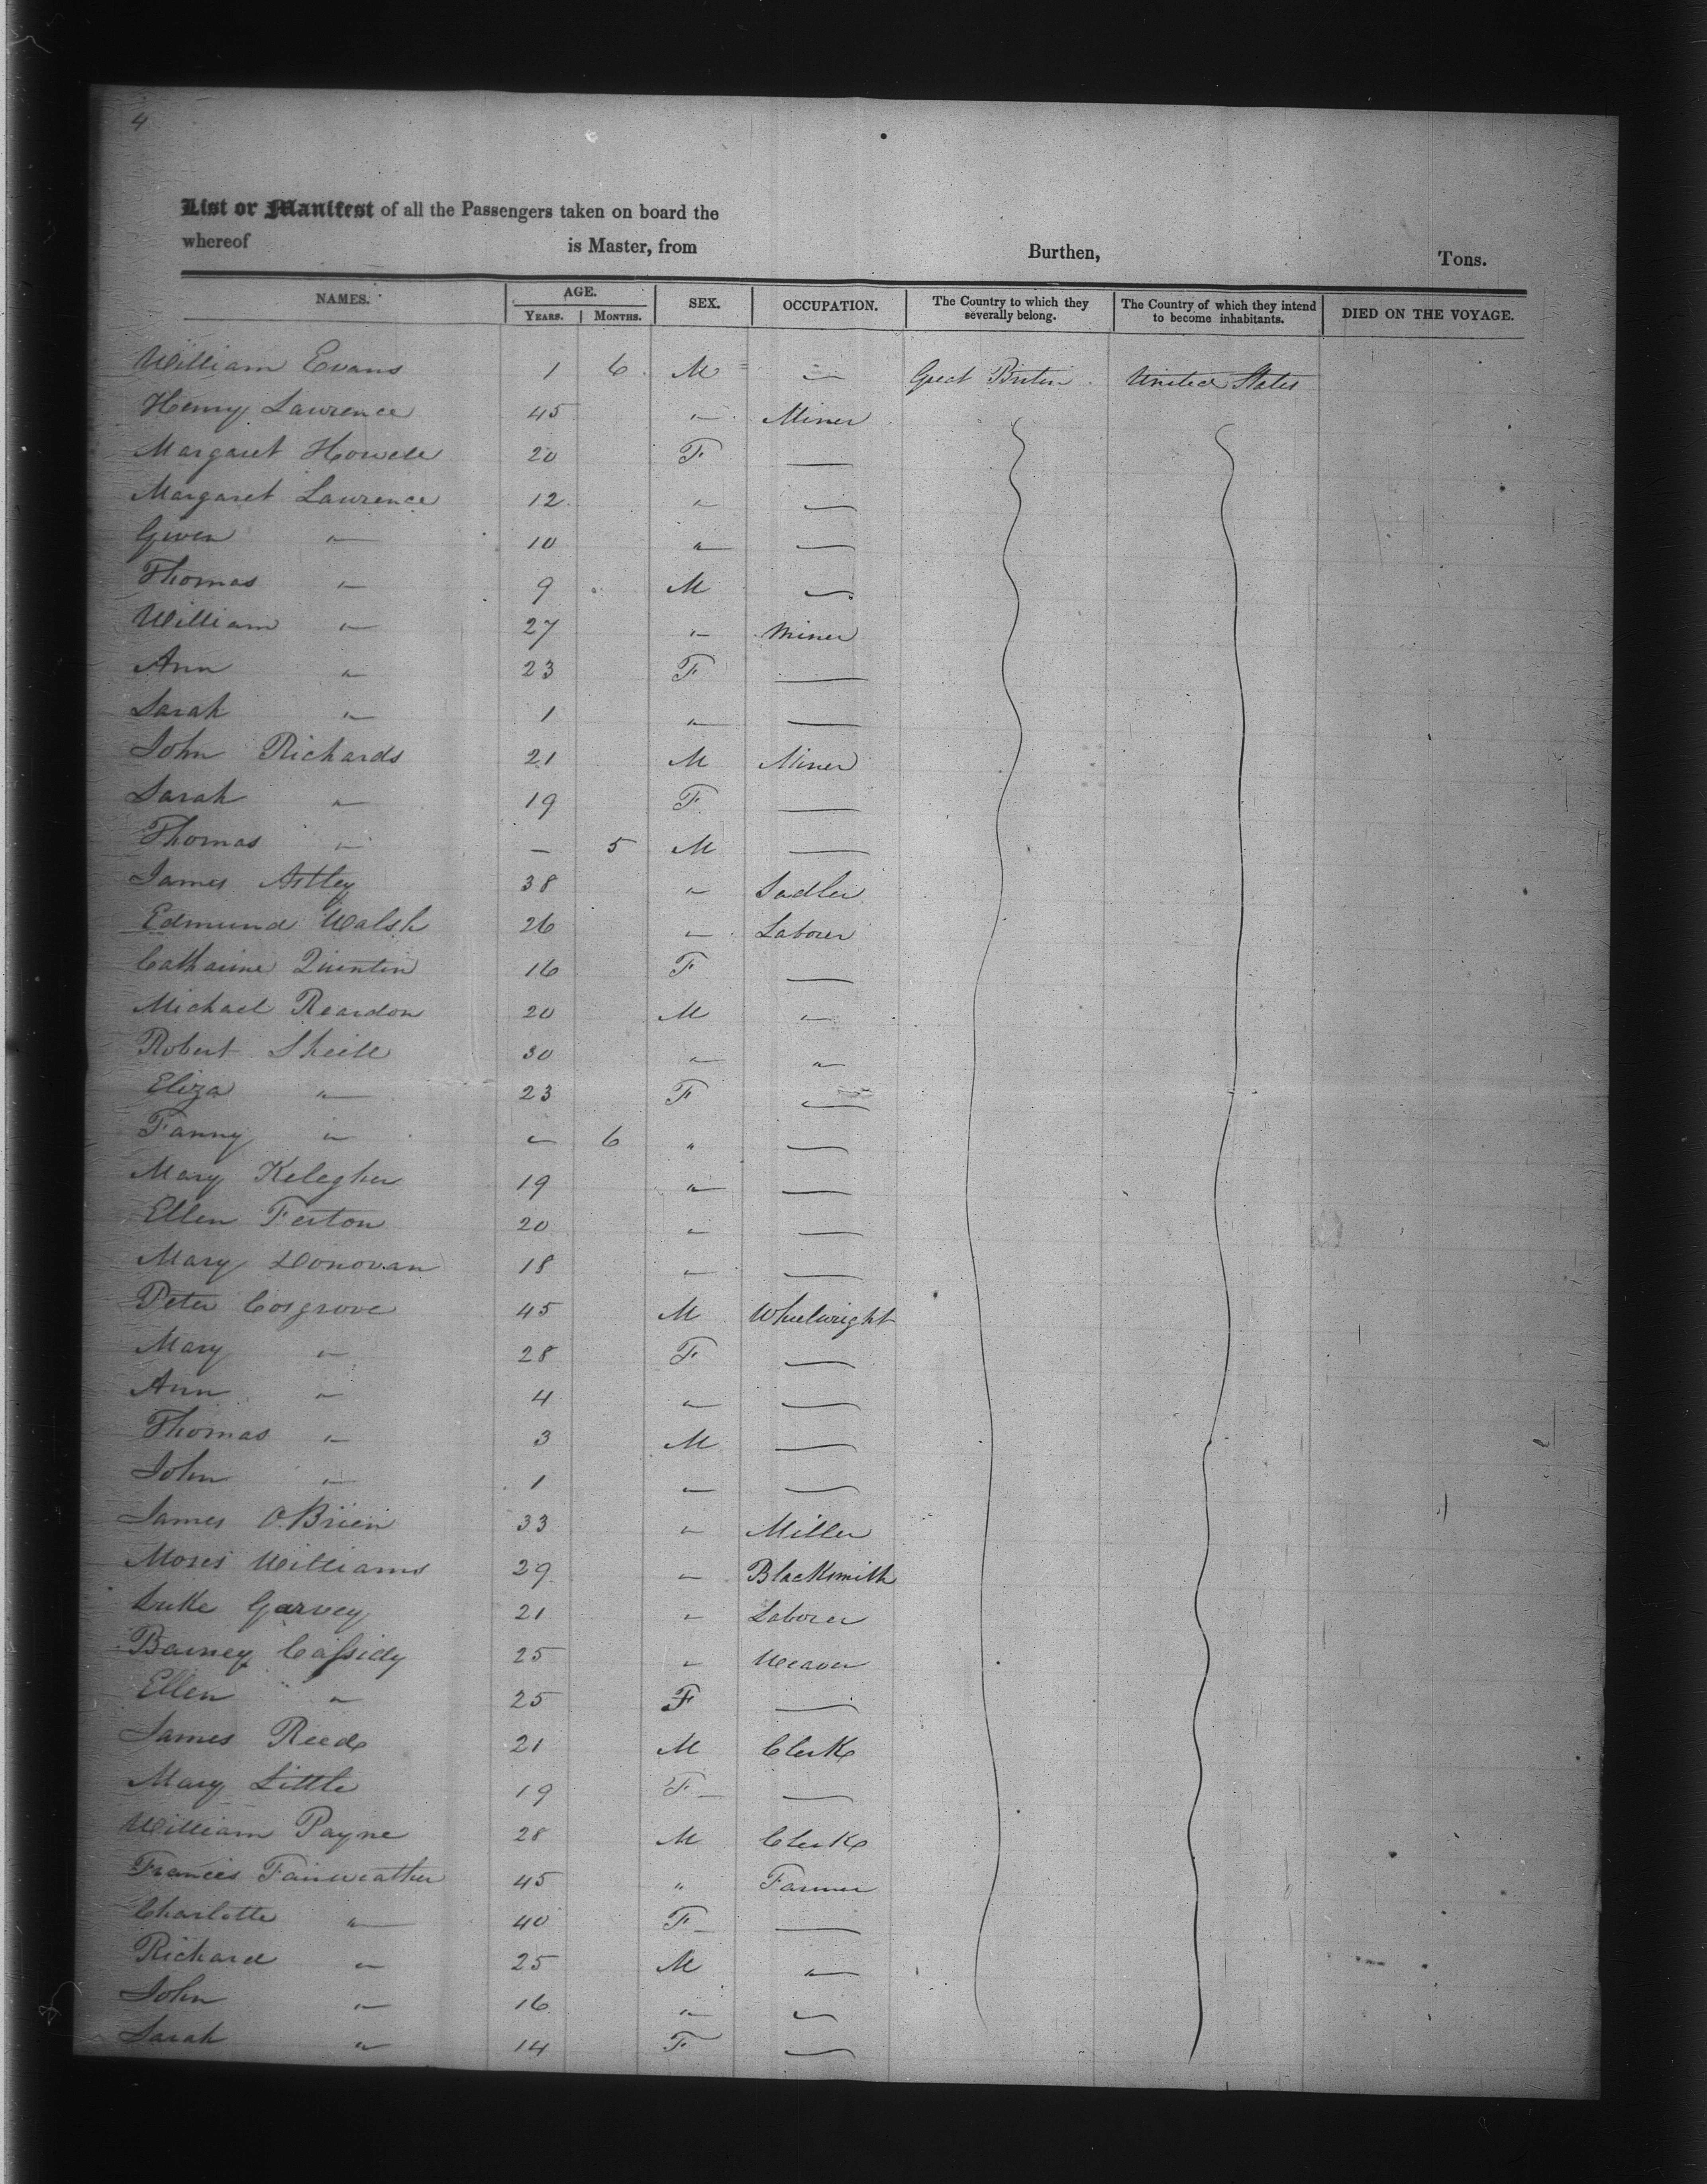 4
List or Manifest of all the Passengers taken on board the
whereof is Master, from Burthen, Tons.
NAMES. AGE. SEX. OCCUPATION. The Country to which they severally belong. The Country of which they intend to become inhabitants. DIED ON THE VOYAGE.
YEARS. MONTHS.
William Evans 1 6 M — Great Britain United States
Henry Lawrence 45 " Miner
Margaret Howell 20 F —
Margaret Lawrence 12 " —
Gwen " 10 " —
Thomas " 9 M —
William " 27 " Miner
Ann " 23 F —
Sarah " 1 " —
John Richards 21 M Miner
Sarah " 19 F —
Thomas " — 5 M —
James Astley 38 " Sadler
Edmund Walsh 26 " Laborer
Catharine Quintin 16 F —
Michael Reardon 20 M "
Robert Sheill 30 " "
Eliza " 23 F —
Fanny " — 6 " —
Mary Kelegher 19 " —
Ellen Ferton 20 " —
Mary Donovan 18 " —
Peter Cosgrove 45 M Wheelwright
Mary " 28 F —
Ann " 4 " —
Thomas " 3 M —
John " 1 " —
James O'Brien 33 " Miller
Moses Williams 29 " Blacksmith
Luke Garvey 21 " Laborer
Barney Cassidy 25 " Weaver
Ellen " 25 F —
James Reed 21 M Clerk
Mary Little 19 F —
William Payne 28 M Clerk
Francis Fairweather 45 " Farmer
Charlotte " 40 F —
Richard " 25 M "
John " 16 " —
Sarah " 14 F —